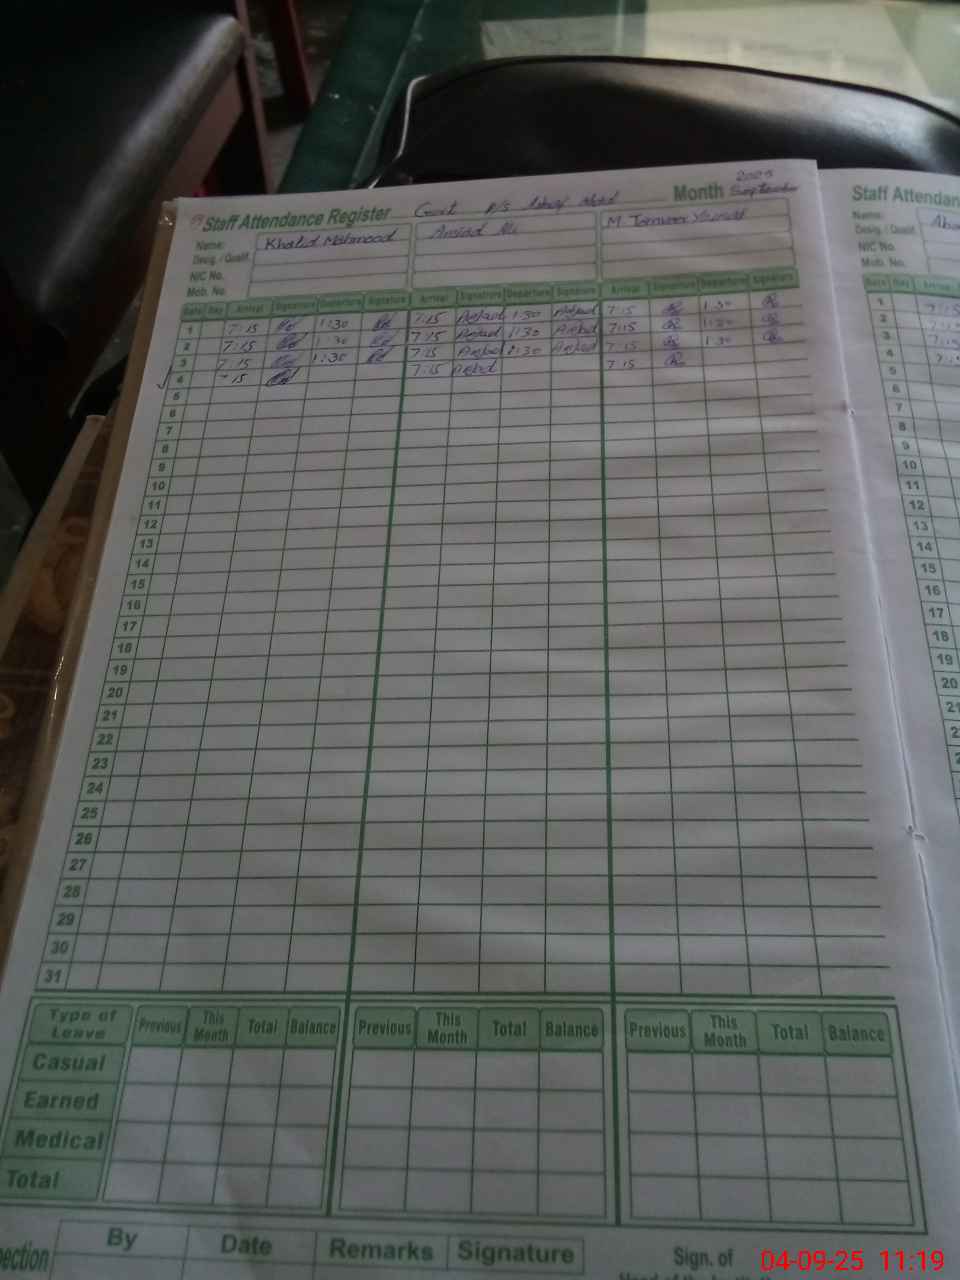 2025
Staff Attendance Register Govt P/S Month September Staff Attendan
Name: Khalid Mahmood Amjad Ali M Tanveer Name:
Desig. / Qualif. Desig. / Qualif.
NIC No. NIC No.
Mob. No. Mob. No.
Date Day Arrival Signature Departure Signature Arrival Signature Departure Signature Arrival Signature Departure Signature Date Day Arrival
1 7:15 1:30 7:15 Amjad 1:30 Amjad 7:15 1:30 1 7:15
2 7:15 1:30 7:15 Amjad 1:30 Amjad 7:15 1:30 2 7:15
3 7:15 1:30 7:15 Amjad 1:30 Amjad 7:15 1:30 3 7:15
4 7:15 7:15 Amjad 7:15 4 7:15
5 5
6 6
7 7
8 8
9 9
10 10
11 11
12 12
13 13
14 14
15 15
16 16
17 17
18 18
19 19
20 20
21 21
22
23
24
25
26
27
28
29
30
31
Type of Leave Previous This Month Total Balance Previous This Month Total Balance Previous This Month Total Balance
Casual
Earned
Medical
Total
pection By Date Remarks Signature Sign. of
04-09-25 11:19